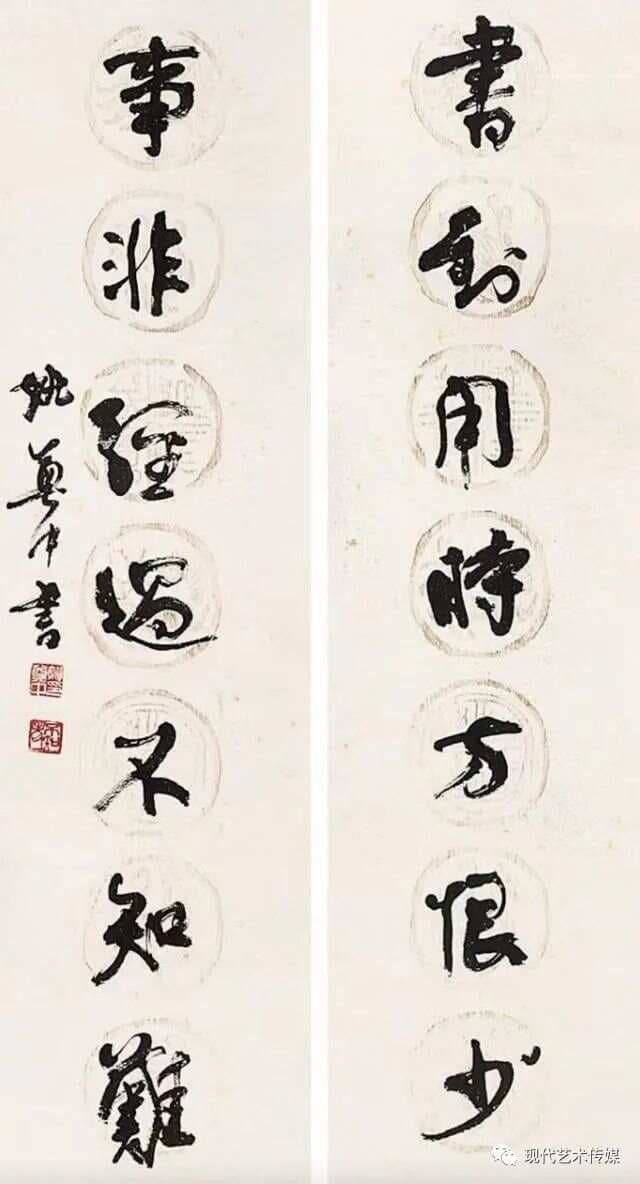 書到用時方恨少
事非經過不知難
姚奠中書
现代艺术传媒